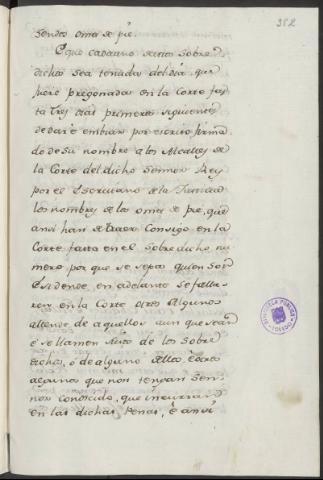 352
sendos omes de pie.
E que cada uno destos sobre
dichos sea tenudo del dia que
fuere pregonados en la Corte fas
ta tres dias primeros siguientes
de dar é embiar por escrito firma
do de su nombre a los Alcalles de
la Corte del dicho Sennor Rey
por el Escrivano de la Justicia
los nombres de los omes de pie, que
ansi han de traer consigo en la
Corte fasta en el sobredicho nu
mero, por que se sepa quien son
é si dende en adelante se falla
ren en la Corte otros algunos
allende de aquellos aun que sean
é se llamen suyos de los sobre
dichos, ó de alguno dellos é otros
algunos que non tengan Sen
nor conoscido, que incurran
en las dichas penas, é ansi
BIBLIOTECA PUBLICA
TOLEDO